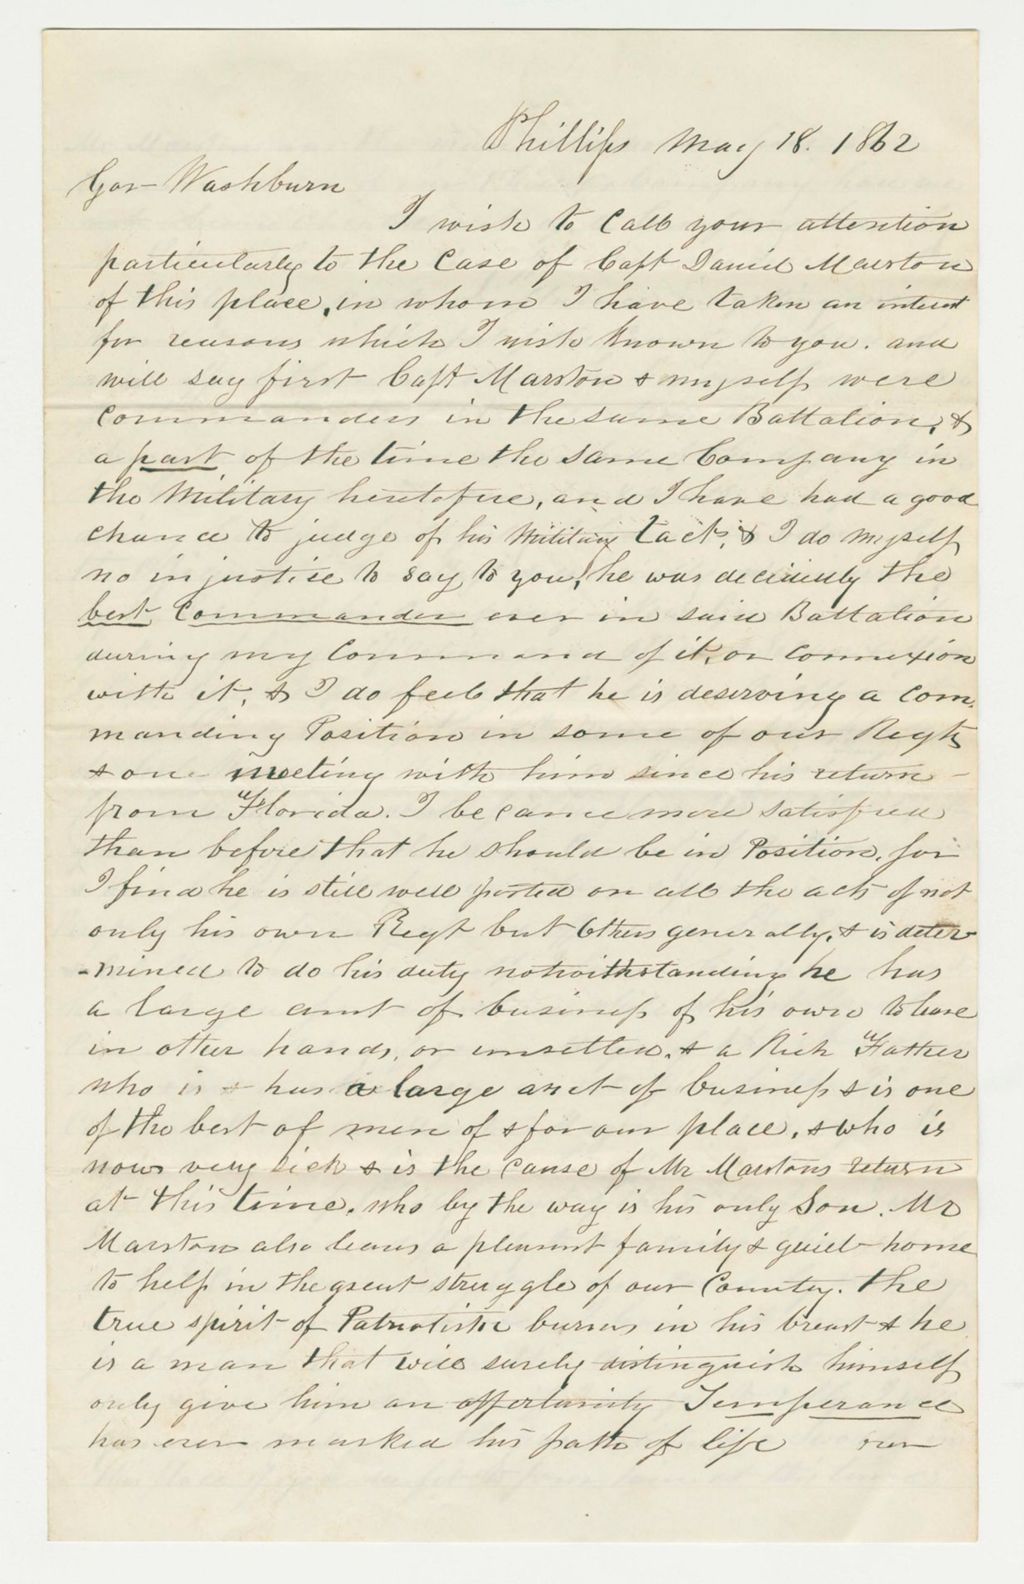 Phillips May 18. 1862
Gov Washburn
I wish to Call your attention
particularly to the Case of Capt Daniel Marston
of this place, in whom I have taken an interest
for reasons which I wish known to you. and
will say first Capt Marston & myself were
Commanders in the same Battalion, &
a part of the time the same Company in
the Military heretofore, and I have had a good
chance to judge of his Military tact, & I do myself
no injustice to say to you, he was decidedly the
best Commander ever in said Battalion
during my Command of it, or Connexion
with it, & I do feel that he is deserving a Com
manding Position in some of our Regts
& one meeting with him since his return
from Florida. I became more satisfied
than before that he should be in Position, for
I find he is still well posted on all the acts of not
only his own Regt but Others generally, & is deter
-mined to do his duty notwithstanding he has
a large amt of business of his own to leave
in other hands, or unsettled, & a Rich Father
who is & has a large amt of business & is one
of the best of men of & for our place, & who is
now very sick & is the cause of Mr Marstons return
at this time, who by the way is his only Son. Mr
Marston also leaves a pleasant family & quiet home
to help in the great struggle of our Country. the
true spirit of Patriotism burns in his breast & he
is a man that will surely distinguish himself
only give him an opportunity Temperance
has ever marked his path of life over